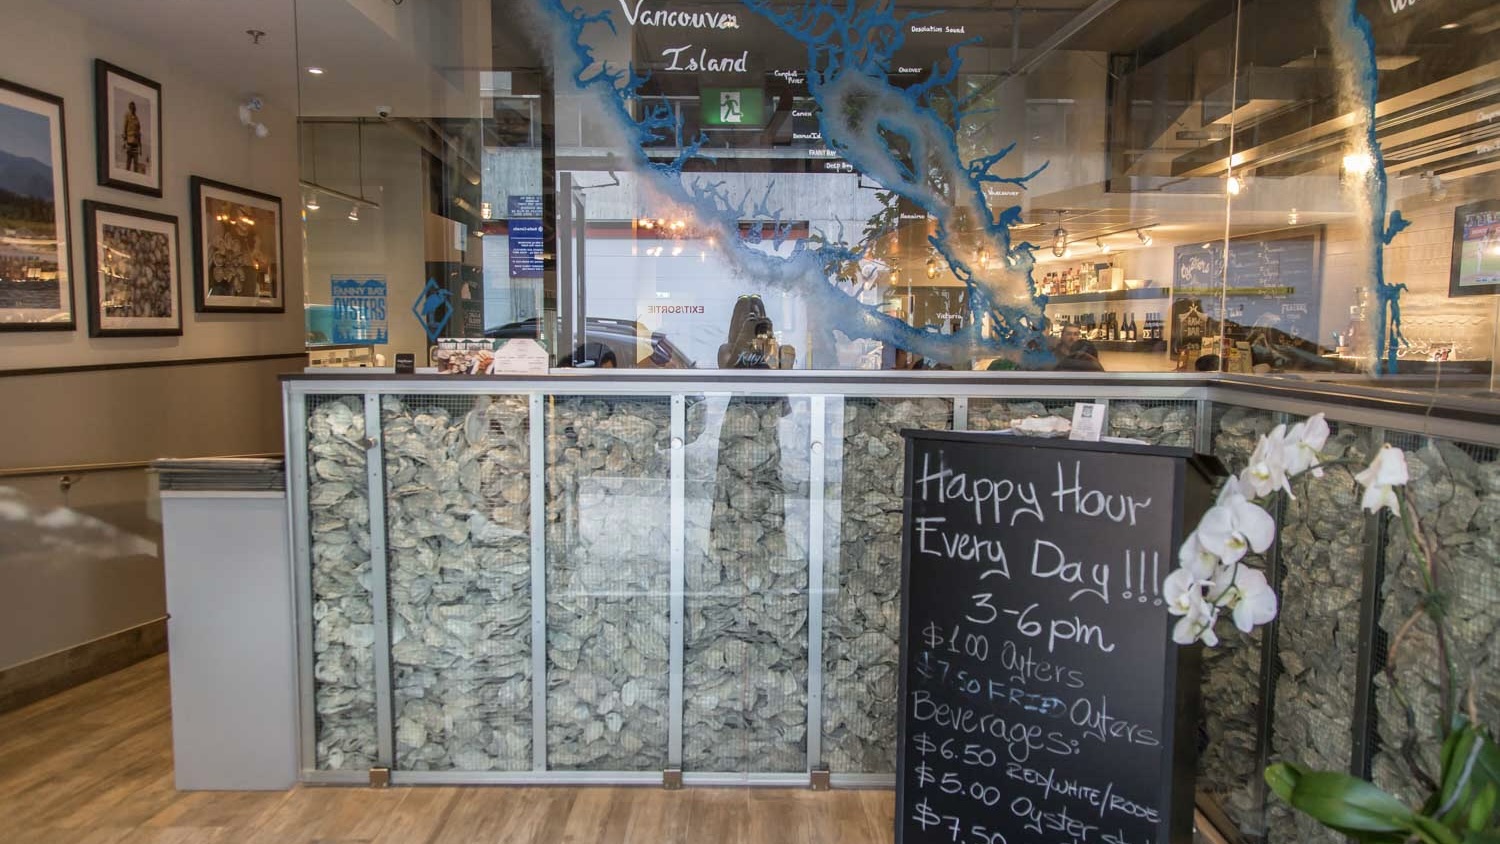 Vancouver
Island
Desolation Sound
Campbell
River
Comox
FANNY BAY
Deep Bay
Vancouver
Nanaimo
Victoria
EXIT/SORTIE
FANNY BAY
OYSTERS
Oysters
Happy Hour
Every Day!!!
3-6pm
$1.00 Oysters
$7.50 FRIED Oysters
Beverages:
$6.50 RED/WHITE/ROSE
$5.00 Oyster
$7.50